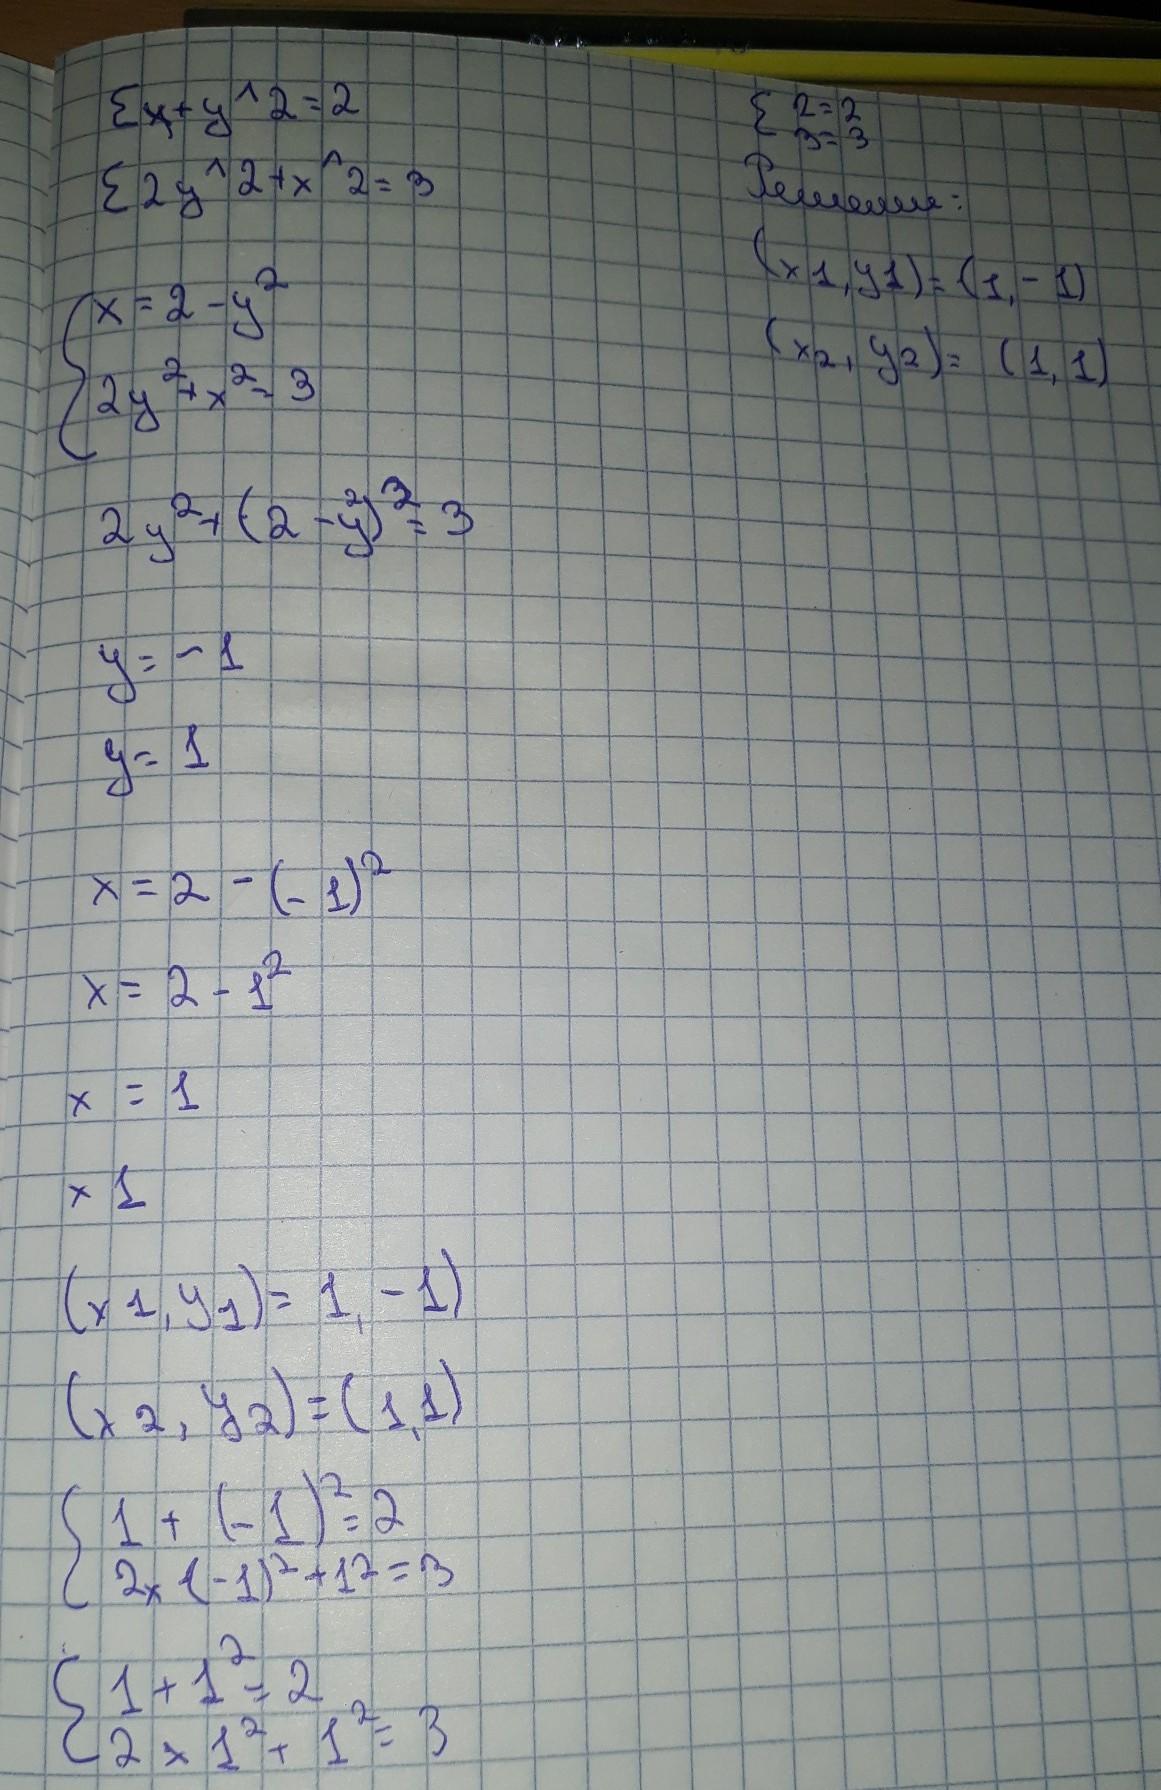 {x+y^2=2
{2y^2+x^2=3
{x=2-y²
2y²+x²=3
2y²+(2-y²)²=3
y=-1
y=1
x=2-(-1)²
x=2-1²
x=1
x1
(x1,y1)=1,-1)
(x2,y2)=(1,1)
{1+(-1)²=2
2x(-1)²+1²=3
{1+1²=2
2x1²+1²=3
{2=2
3=3
Решение:
(x1,y1)=(1,-1)
(x2,y2)=(1,1)